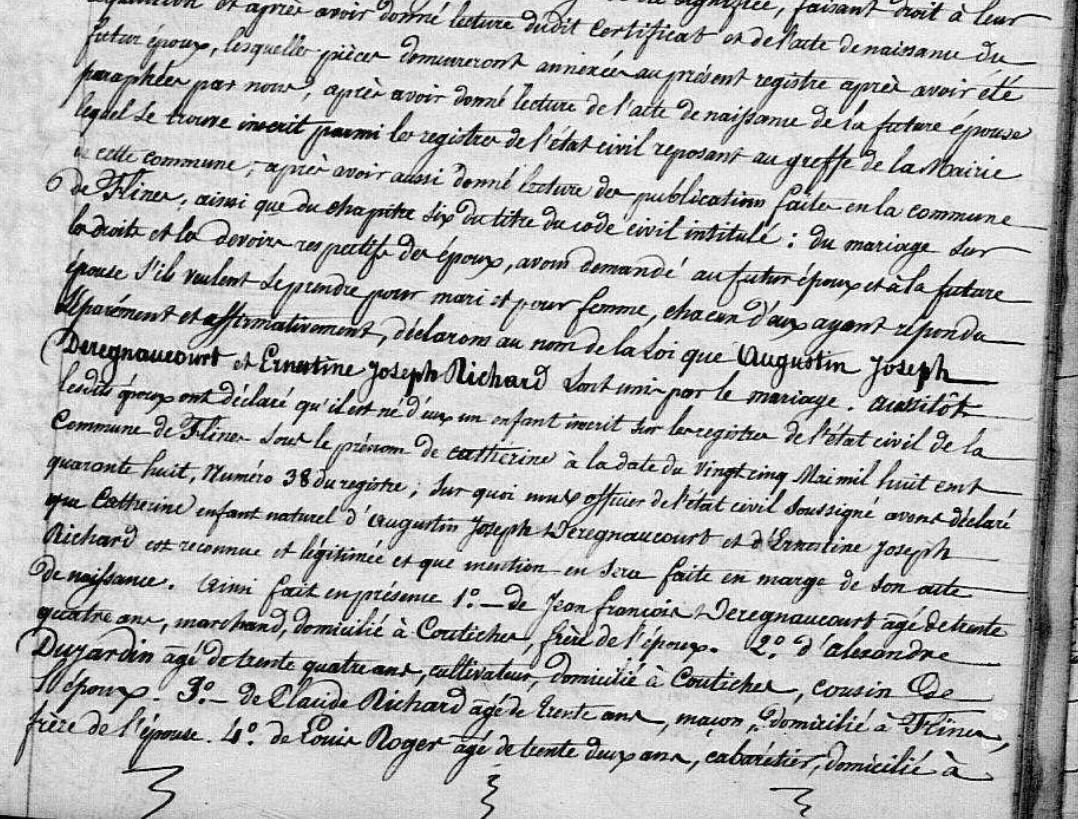 et après avoir donné lecture dudit certificat et de l'acte de naissance du
futur époux, lesquelles pièces demeureront annexées au présent registre après avoir été
paraphées par nous, après avoir donné lecture de l'acte de naissance de la future épouse
lequel se trouve inscrit parmi les registres de l'état civil reposant au greffe de la Mairie
de cette commune, après avoir aussi donné lecture des publications faites en la commune
de Flines, ainsi que du chapitre six du titre du code civil intitulé : du mariage sur
les droits et les devoirs respectifs des époux, avons demandé au futur époux et à la future
épouse s'ils veulent se prendre pour mari et pour femme, chacun d'eux ayant répondu
séparément et affirmativement, déclarons au nom de la loi que Augustin Joseph
Deregnaucourt et Ernestine Joseph Richard sont unis par le mariage. aussitôt
lesdits époux ont déclaré qu'il est né d'eux un enfant inscrit sur les registres de l'état civil de la
Commune de Flines sous le prénom de catherine à la date du vingt cinq Mai mil huit cent
quarante huit, Numéro 38 du registre ; sur quoi nous officier de l'état civil soussigné avons déclaré
que Catherine enfant naturel d'Augustin Joseph Deregnaucourt et d'Ernestine Joseph
Richard est reconnue et légitimée et que mention en sera faite en marge de son acte
de naissance. Ainsi fait en présence 1.° de Jean françois Deregnaucourt agé de trente
quatre ans, marchand, domicilié à Coutiches, frère de l'époux. 2.° d'alexandre
Dujardin agé de trente quatre ans, cultivateur, domicilié à Coutiches, cousin de
l'époux. 3.° de Claude Richard agé de trente ans, maçon, domicilié à Flines,
frère de l'épouse. 4.° de Louis Roger agé de trente deux ans, cabarétier, domicilié à